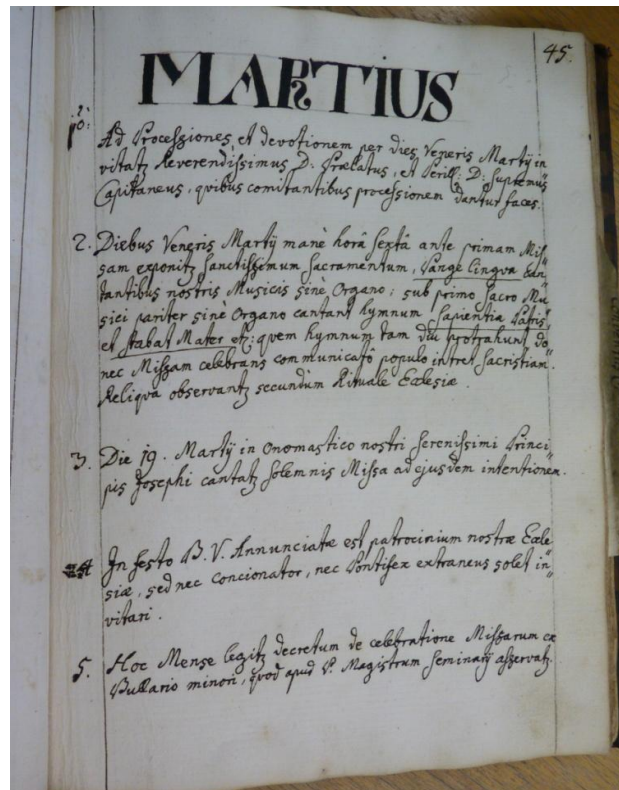 45.
MARTIUS
1º: Ad Processiones, et devotionem per dies Veneris Martÿ in
vitatʒ Reverendissimus D: Prælatus, et Perill: D: Supremus
Capitaneus, qvibus comitantibus processionem dantur faces.
2. Diebus Veneris Martÿ manè horâ sextâ ante primam Mis
sam exponitʒ Sanctissimum Sacramentum, Pange lingva can
tantibus nostris Musicis sinè Organo; sub primo Sacro Mu
sici pariter sinè Organo cantant hymnum Sapientia Patris,
et Stabat Mater etc: qvem hymnum tam diu protrahunt do
nec Missam celebrans communicato populo intret Sacristiam.
Reliqva observantʒ secundùm Rituale Ecclesiæ.
3. Die 19. Martÿ in onomastico nostri Serenissimi Princi
pis Josephi cantatʒ Solemnis Missa ad ejusdem intentionem.
4 In festo B. V. Annunciatæ est patrocinium nostræ Eccle
siæ, sed nec concionator, nec Pontifex extraneus solet in
vitari.
5. Hoc Mense legitʒ decretum de celebratione Missarum ex
Bullario minori, qvod apud P. Magistrum Seminarÿ asservatʒ.